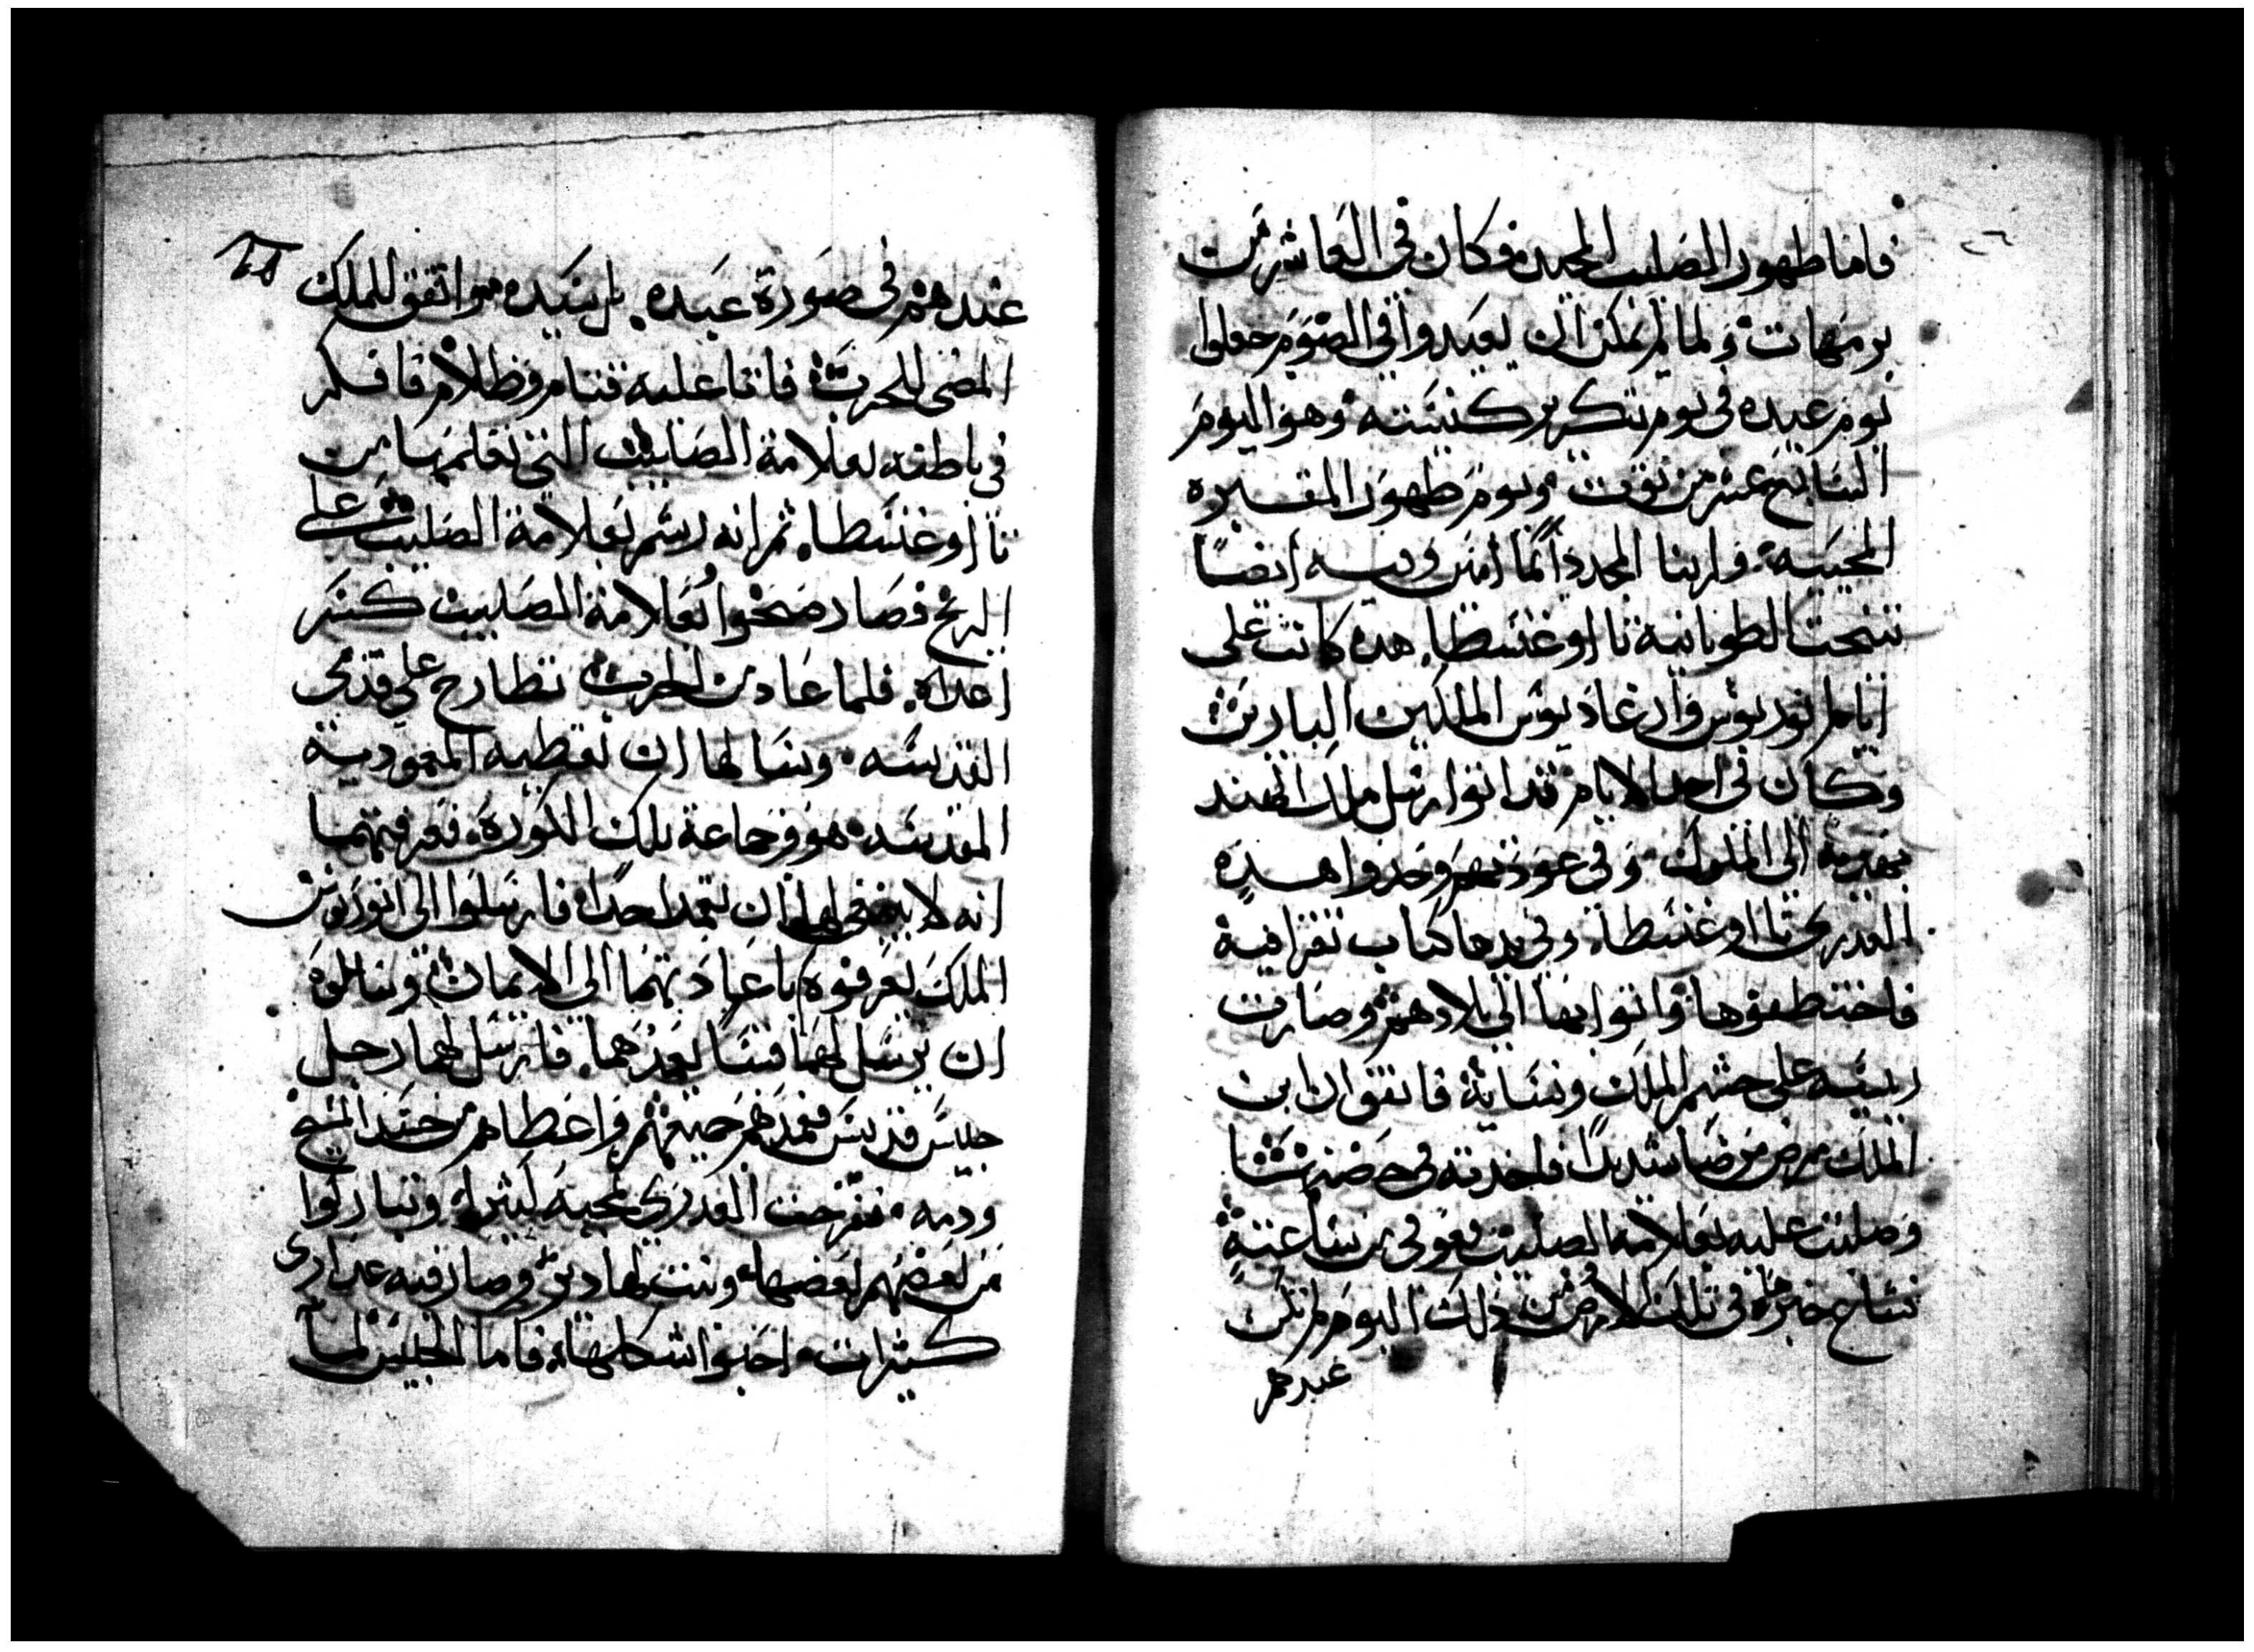 ٢٦
فاما ظهور الصليب المجيد فكان في العاشر من
برمهات ولما لم يمكن ان يعيدوا في الصوم جعلوا
يوم عيده في يوم تكرير كنيسته وهو اليوم
السابع عشر من توت ويوم ظهور المقبره
المحييه ولربنا المجد دائما امين وفيه ايضا
تنيحت الطوبانية تااوغنسطا هده كانت على
ايام انوريوس وارغاديوس الملكين البارين
وكان في احد الايام قد اتوا رسل ملك الهند
بهدية الى الملوك وفي عودتهم وجدوا هده
العدرى تااوغنسطا وفي يدها كتاب تقرا فيه
فاختطفوها واتوا بها الى بلادهم وصارت
رييسه على حشم الملك ونسايه فاتفق ان ابن
الملك مرض مرضا شديدا فاخدته في حضنها
وصلبت عليه بعلامة الصليب فعوفي من ساعته
فشاع خبرها في تلك الارض من ذلك اليوم لم تكن
عندهم
عندهم في صورة عبده بل سيده واتفق للملك
المضي للحرب فاتا عليه قتام وظلام فافكر
في باطنه بعلامة الصليب التي تعلمها من
تااوغنسطا ثم انه رسم بعلامة الصليب على
الريح فصار صحوا بعلامة الصليب كسر
اعداه فلما عاد من الحرب تطارح على قدمي
القديسه وسالها ان تعطيه المعمودية
المقدسه هو وجماعة تلك الكورة فعرفتهما
انه لا ينبغي لها ان تعمد احدا فارسلوا الى انوريوس
الملك يعرفوه باعيادتهما الى الايمان وسالوه
ان يرسل لهما قسا يعمدهما فارسل لهما رجل
حبيس قديس فعمدهم جميعهم واعطاهم من جسد المسيح
ودمه ففرحت العدرى بمجيه كثيرا وتباركوا
من بعضهم بعضها وبنت لها دير وصار فيه عدارى
كثيرات احبوا شكلها فاما الحبيس لما